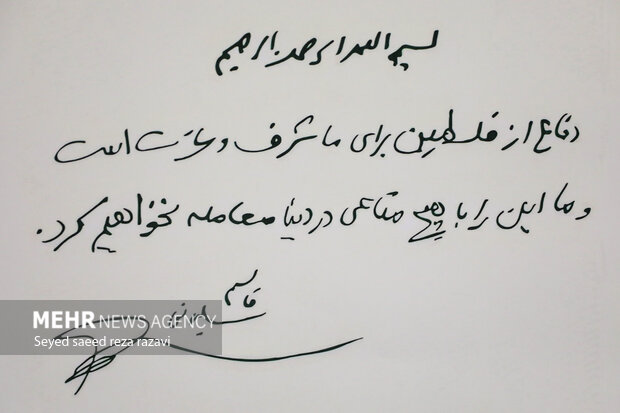 بسم الله الرحمن الرحیم
دفاع از فلسطین برای ما شرف و عزت است
و ما این را با هیچ متاعی در دنیا معامله نخواهیم کرد.
قاسم
سلیمانی
MEHR NEWS AGENCY
Seyed saeed reza razavi